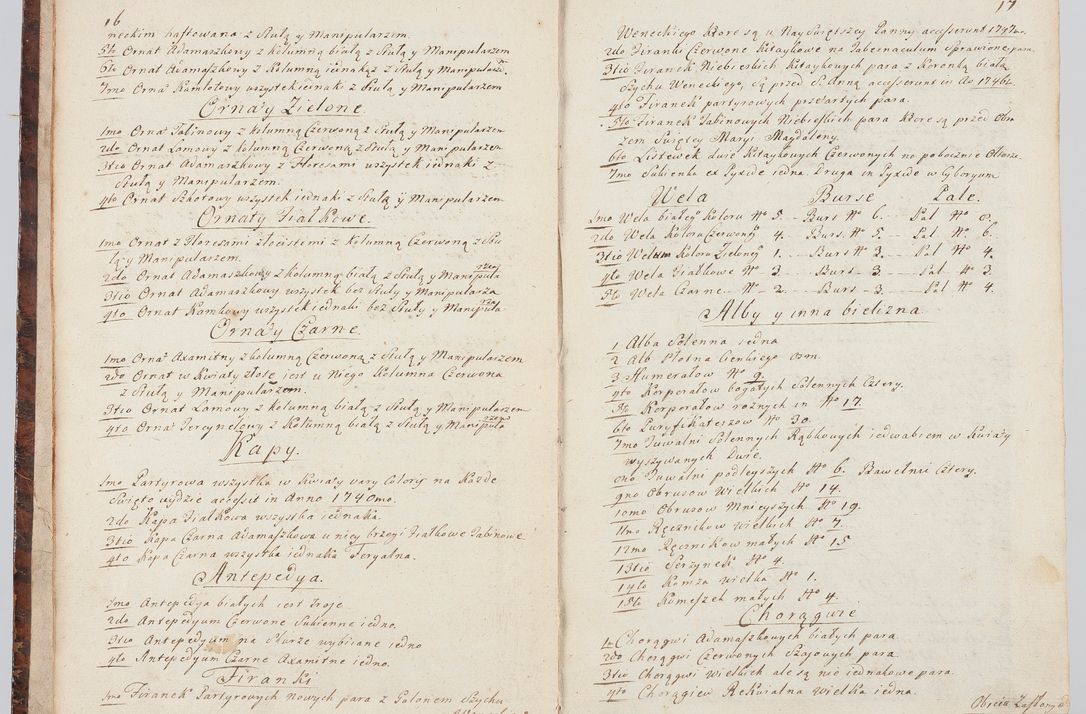 16
neckim haftowana z Stułą y Manipularzem.
5to Ornat Adamaszkowy z kolumną białą z Stułą y Manipularzem
6to Ornat Adamaszkowy z Kolumną iednakąż z Stułą y Manipularz.
7mo Ornat Kamlotowy wszystek iednaki z Stułą y Manipularzem
Ornaty Zielone.
1mo Ornat Tabinowy z kolumną Czerwoną z Stułą y Manipularzem
2do Ornat Lamowy z kolumną Czerwoną z Stułą y Manipularzem
3tio Ornat Adamaszkowy z Floresami wszystek iednaki z
Stułą y Manipularzem.
4to Ornat Szkotowy wszystek iednaki z Stułą y Manipularzem
Ornaty Fiałkowe.
1mo Ornat z Floresami złocistemi z kolumną Czerwoną z Stu
łą y Manipularzem.
2do Ornat Adamaszkowy z kolumną białą z Stułą y Manipularzem
3tio Ornat Adamaszkowy wszystek bez Stuły y Manipularza
4to Ornat Kamkowy wszystek iednaki bez Stuły y Manipula
Ornaty Czarne.
1mo Ornat Axamitny z kolumną Czerwoną z Stułą y Manipularzem
2do Ornat w Kwiaty złote iest u Niego Kolumna Czerwona
z Stułą y Manipularzem.
3tio Ornat Lamowy z kolumną białą z Stułą y Manipularzem
4to Ornat Tercynelowy z Kolumną białą z Stułą y Manipula
Kapy.
1mo Partyrowa wszystka w Kwiaty vary Coloris na Kożde
Swięto uydzie accessit in Anno 1740mo.
2do Kapa Fiałkowa wszystka iednaka.
3tio Kapa Czarna Adamaszkowa u niey brzegi Fiałkowe Tabinowe
4to Kapa Czarna wszystka iednaka Feryalna.
Antepedya.
1mo Antepedya białych iest troje.
2do Antepedyum Czerwone Sukienne iedno.
3tio Antepedyum na Skurze wybiiane iedno
4to Antepedyum Czarne Axamitne iedno.
Firanki
1mo Firanek Partyrowych nowych para z Galonem Szychu
17
Weneckiego Które są u Nayswiętszey Panny accesserunt 1747.
2do Firanki Czerwone Kitaykowe na Tabernaculum Sprawione para.
3tio Firanek Niebieskich Kitaykowych para z Koronką białą
Szychu Weneckiego, są przed S. Anną accesserunt in Ao 1746to.
4to Firanek partyrowych przetartych para.
5to Firanek Tabinowych Niebieskich para Które są przed Obra
zem Swiętey Maryi Magdaleny.
6to Listewek dwie Kitaykowych Czerwonych na pobocznie Ołtarze
7mo Sukienka ex Pyxide iedna Druga in Pyxide w Cyboryum
Wela Burse Pale.
1mo Wela białego koloru No 5. Burs No 6. Pal No 8.
2do Wela Koloru Czerwonego 4. Burs. No 5. Pal No 6.
3tio Welum Koloru Zielonego 1. Burs No 3. Pal No 4.
4to Wela Fiałkowe No 3. Burs 3. Pal No 3.
5to Wela Czarne No 2. Burs 3. Pal No 4.
Alby y inna bielizna.
1 Alba Solenna iedna
2 Alb Płotna Cienkiego osm.
3 Humerałow No 9.
4to Korporałow bogatych Solennych Cztery.
5to Korporałow rożnych in No 17
6to Puryfikaterzow No 30.
7mo Tuwalni Solennych Rąbkowych iedwabiem w Kwiaty
wyszywanych Dwie.
8vo Tuwalni podleyszych No 6. Bawełnai Cztery.
9no Obrusow Wielkich No 14.
10mo Obrusow Mnieyszych No 19.
11mo Ręcznikow wielkich No 7.
12mo Ręcznikow małych No 15
13tio Serzynek No 4.
14to Komża wielka No 1.
15to Komeszek małych No 4.
Chorągwie
1. Chorągwi Adamaszkowych białych para
2do Chorągwi Czerwonych Szajowych para.
3tio Chorągwi wielkich ale są nie iednakowe para
4to Chorągiew Rekwialna wielka iedna.